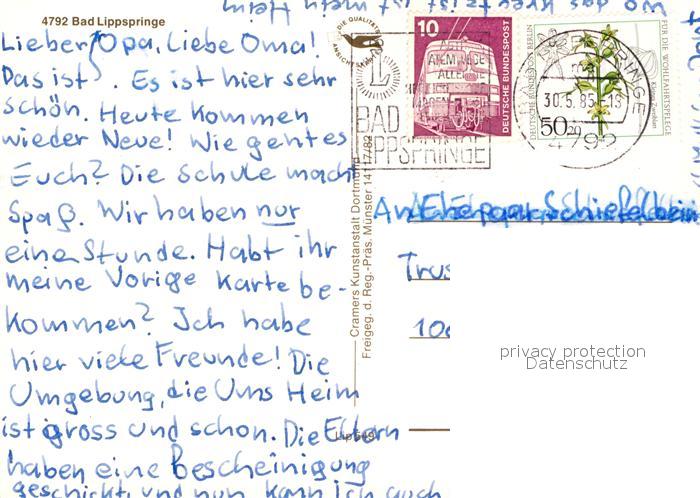 wo das Kreuz ist ist mein Heim
4792 Bad Lippspringe
Lieber Opa, Liebe Oma!
Das ist . Es ist hier sehr
schön. Heute kommen
wieder Neue! Wie geht es
Euch? Die Schule macht
Spaß. Wir haben nur
eine Stunde. Habt ihr
meine Vorige Karte be-
kommen? Ich habe
hier viele Freunde! Die
Umgebung, die Ums Heim
ist gross und schon. Die Eltern
haben eine Bescheinigung
geschickt, und nun kann ich auch
DIE QUALITÄTS
ANSICHTSKARTE
Cramers Kunstanstalt Dortmund
Freigeg. d. Reg.-Präs. Münster 14117/82
Lip
BAD
LIPPSPRINGE
10
DEUTSCHE BUNDESPOST
30.5.85-13
4792
DEUTSCHE BUNDESPOST BERLIN
50+20
FÜR DIE WOHLFAHRTSPFLEGE
An Ehepaar Schiefelbein
Trus
100
privacy protection
Datenschutz